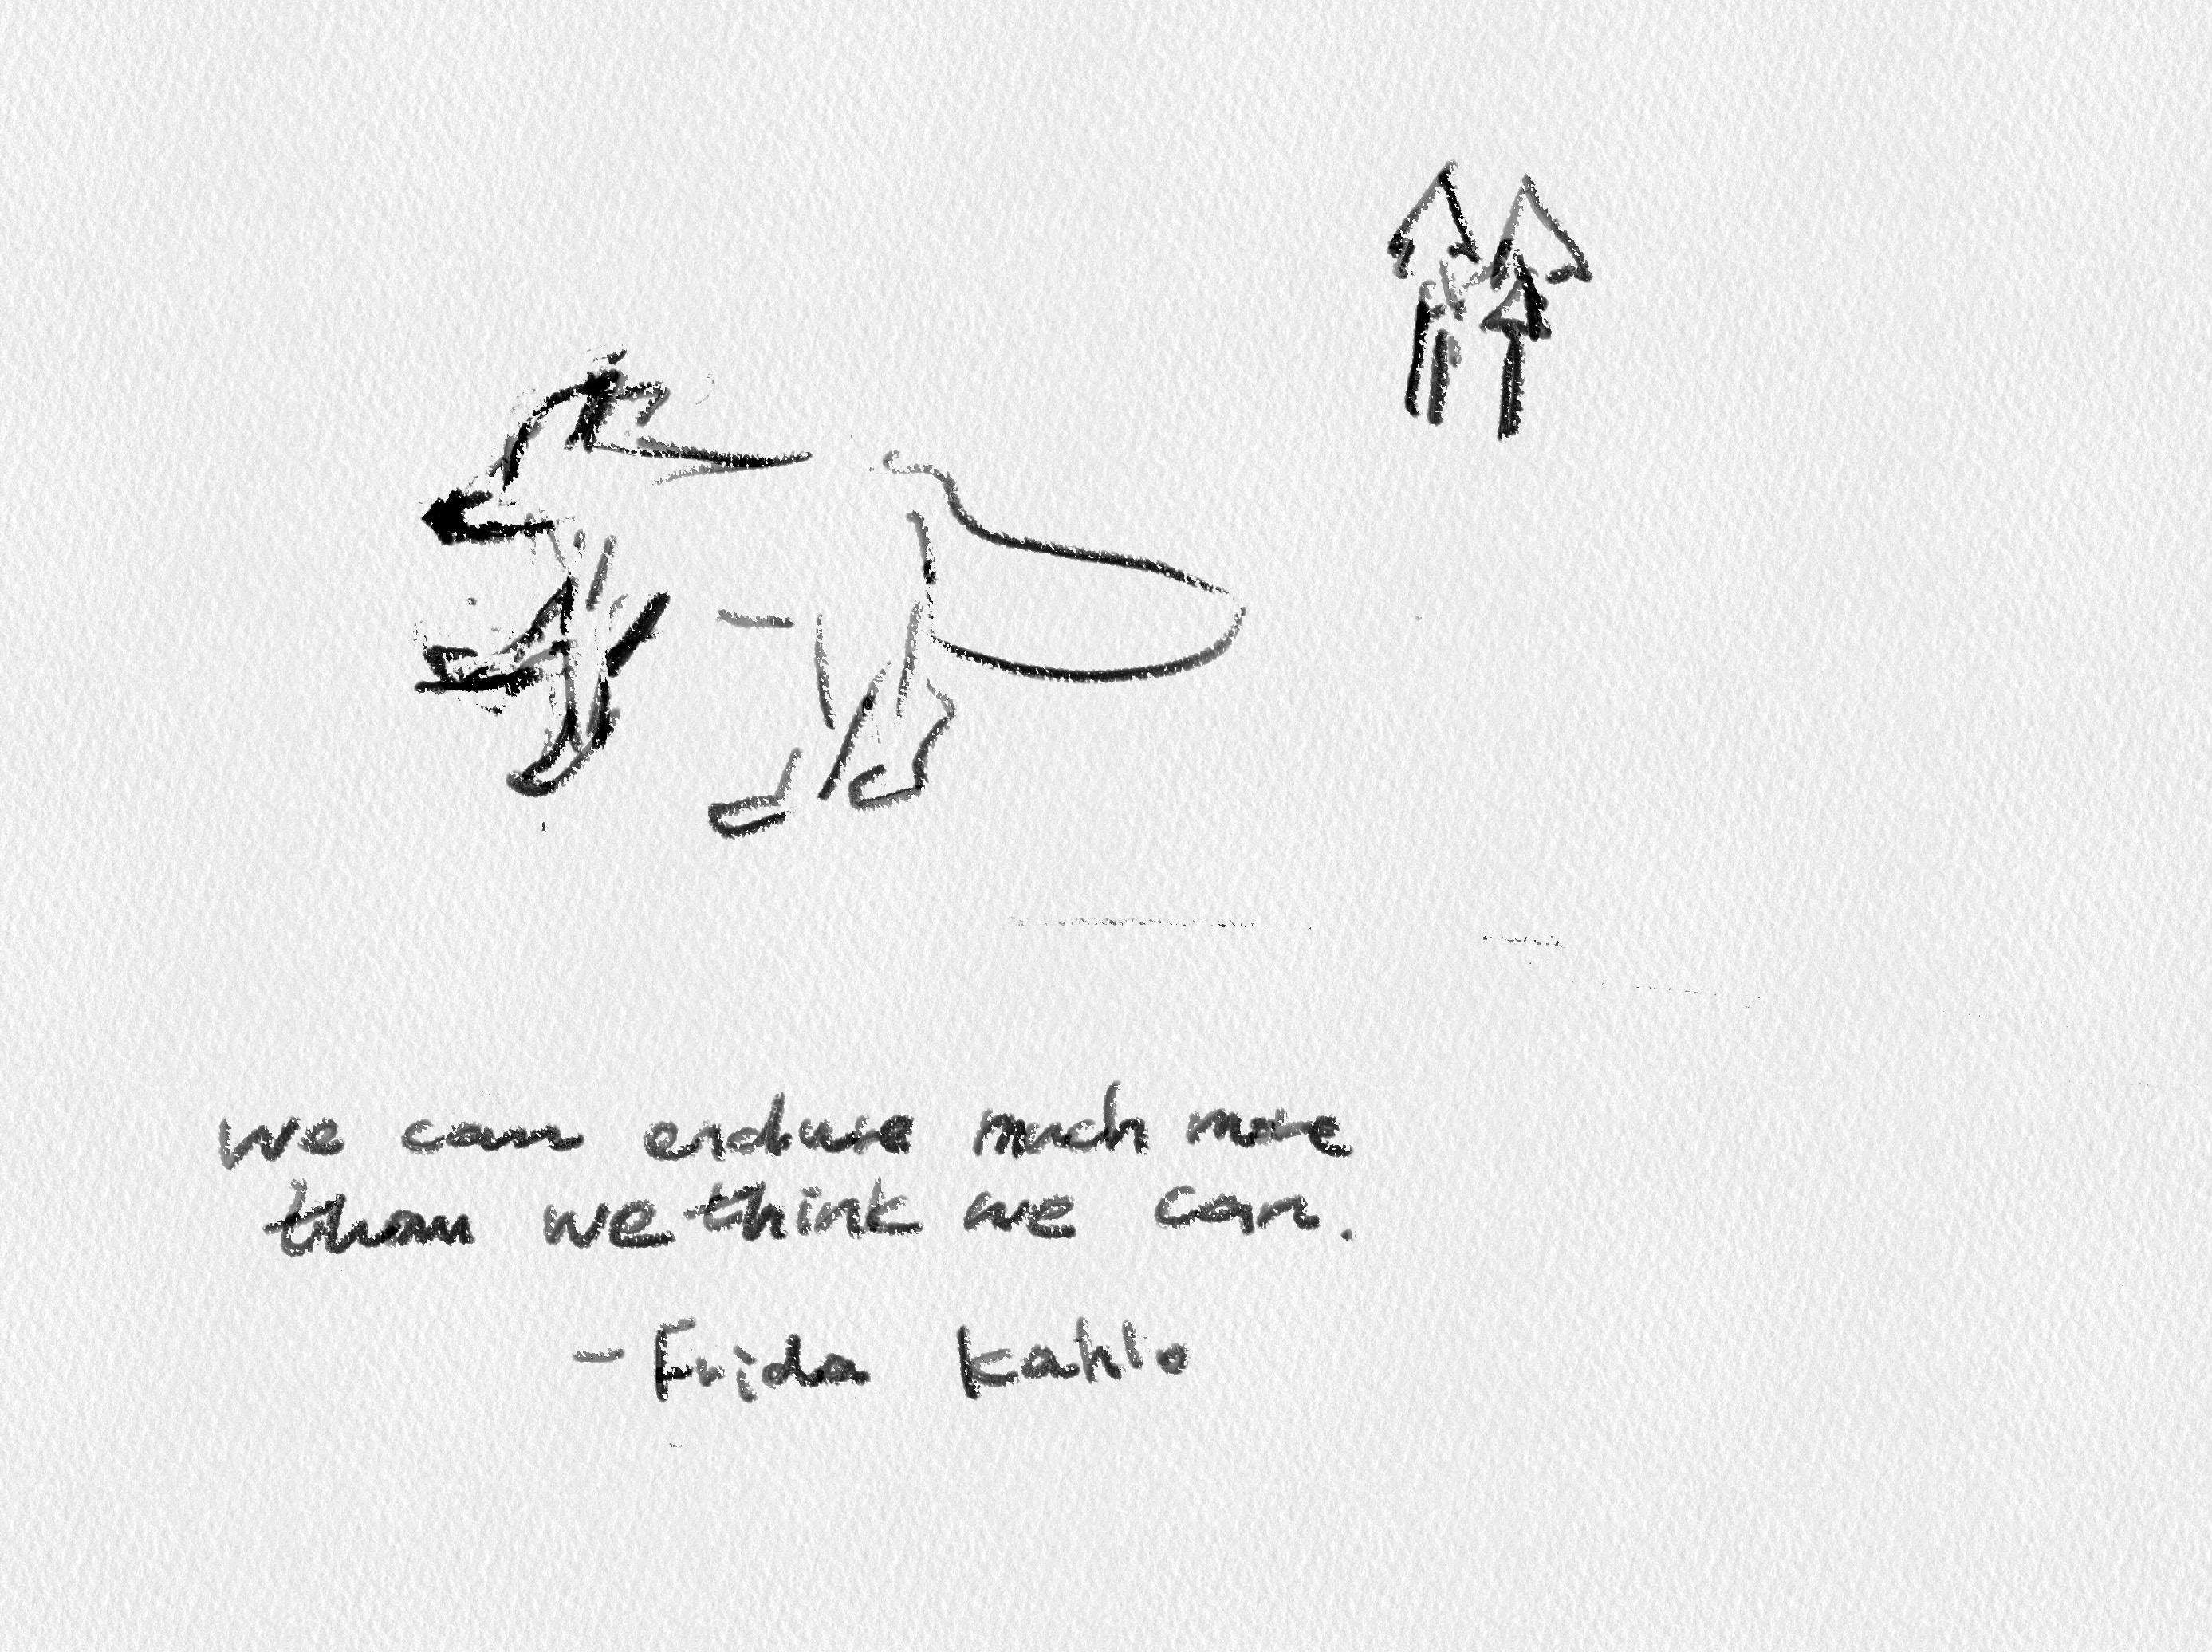 we can endure much more
than we think we can.
- Frida Kahlo